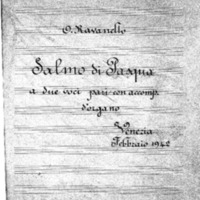 O. Ravanello
Salmo di Pasqua
a due voci pari con accomp.
d'organo
Venezia
Febbraio 1942